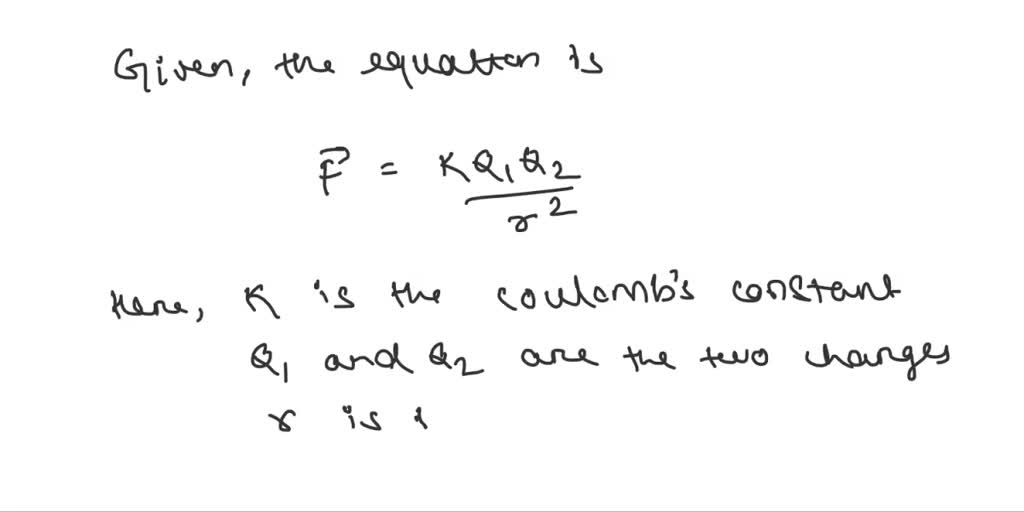 Given, the equation is
F⃗ = KQ₁Q₂/r²
Here, K is the coulomb's constant
Q₁ and Q₂ are the two charges
r is